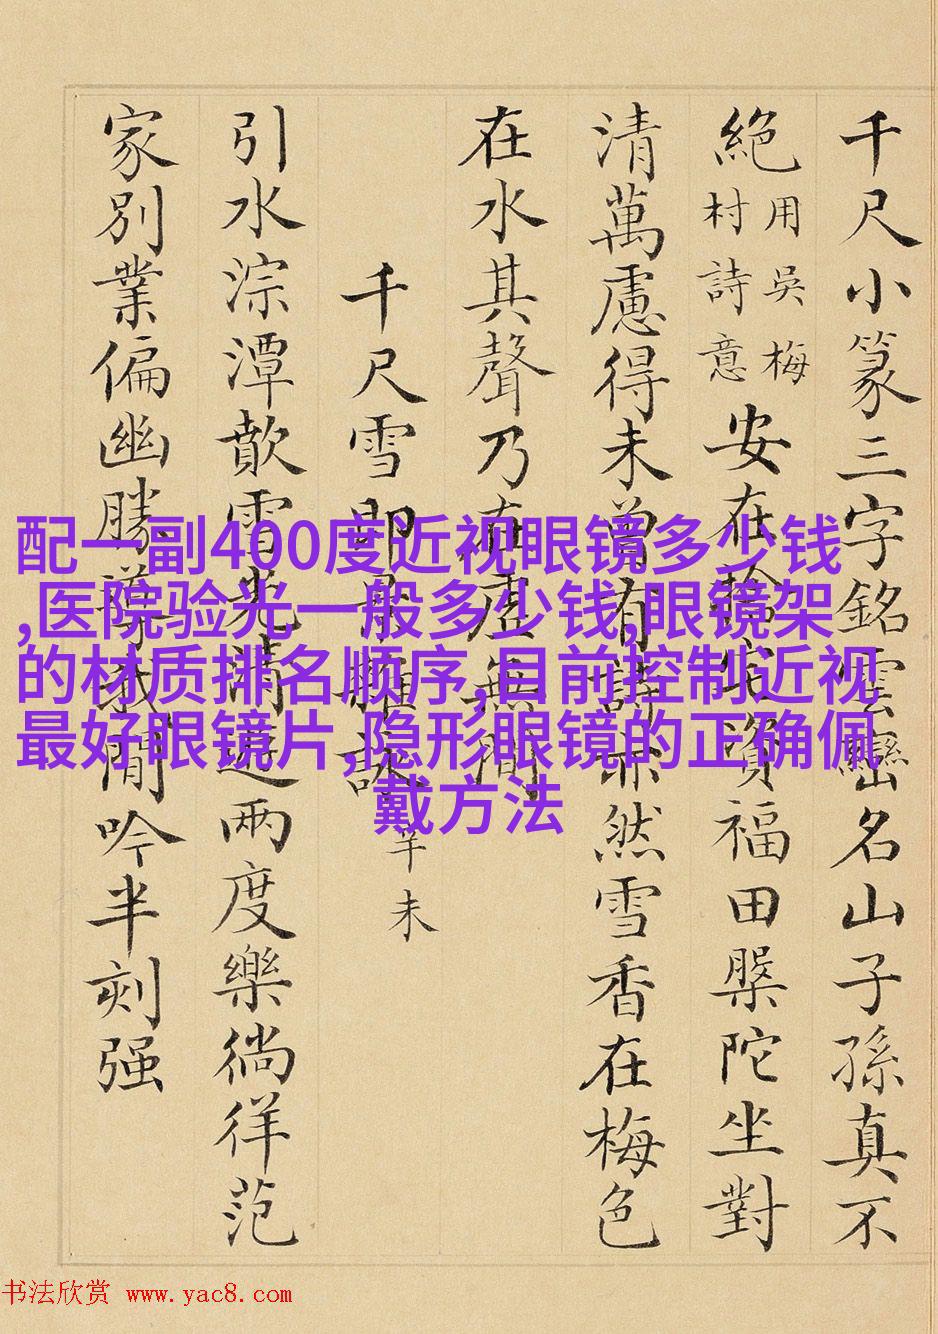 千尺小篆三字銘雲巒名山子孫真不
絕用吳梅村詩意安在資福田槃陀坐對
清萬慮得未曾有詩亦然雪香在梅色
在水其聲乃在虛無間
千尺雪即景雜詠辛未
引水淙潭歕雪光滿兩度樂徜徉范
家別業偏幽勝我閒吟半刻强
配一副400度近视眼镜多少钱
,医院验光一般多少钱,眼镜架
的材质排名顺序,目前控制近视
最好眼镜片,隐形眼镜的正确佩
戴方法
书法欣赏 www.yac8.com